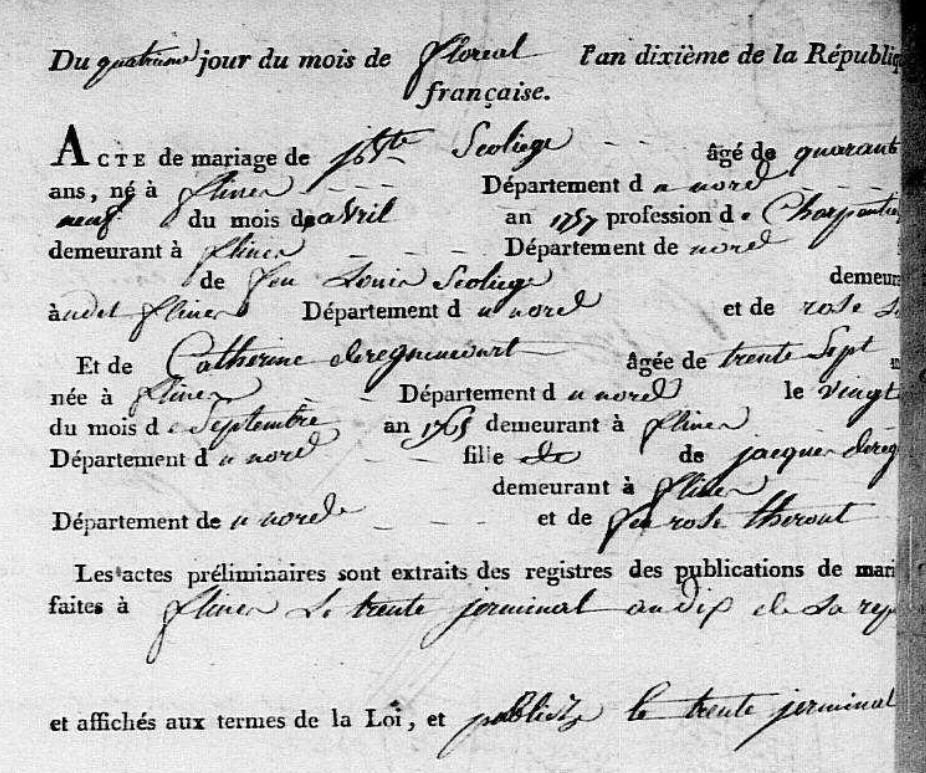 Du quatrieme jour du mois de floreal l'an dixième de la Républiq
française.
ACTE de mariage de jbte Scoliege âgé de quarant
ans, né à flines Département d u nord
neuf du mois d avril an 1757 profession d e Charpentier
demeurant à flines Département de nord
de feu Louis Scoliege demeur
à udit flines Département d u nord et de rose
Et de Catherine deregnaucourt âgée de trente Sept
née à flines Département d u nord le vingt
du mois d e Septembre an 1765 demeurant à flines
Département d u nord fille de de jacques dereg
demeurant à flines
Département de u nord et de feu rose theront
Les actes préliminaires sont extraits des registres des publications de mari
faites à flines Le trente jerminal an dix de La rep
et affichés aux termes de la Loi, et publiez le trente jerminal